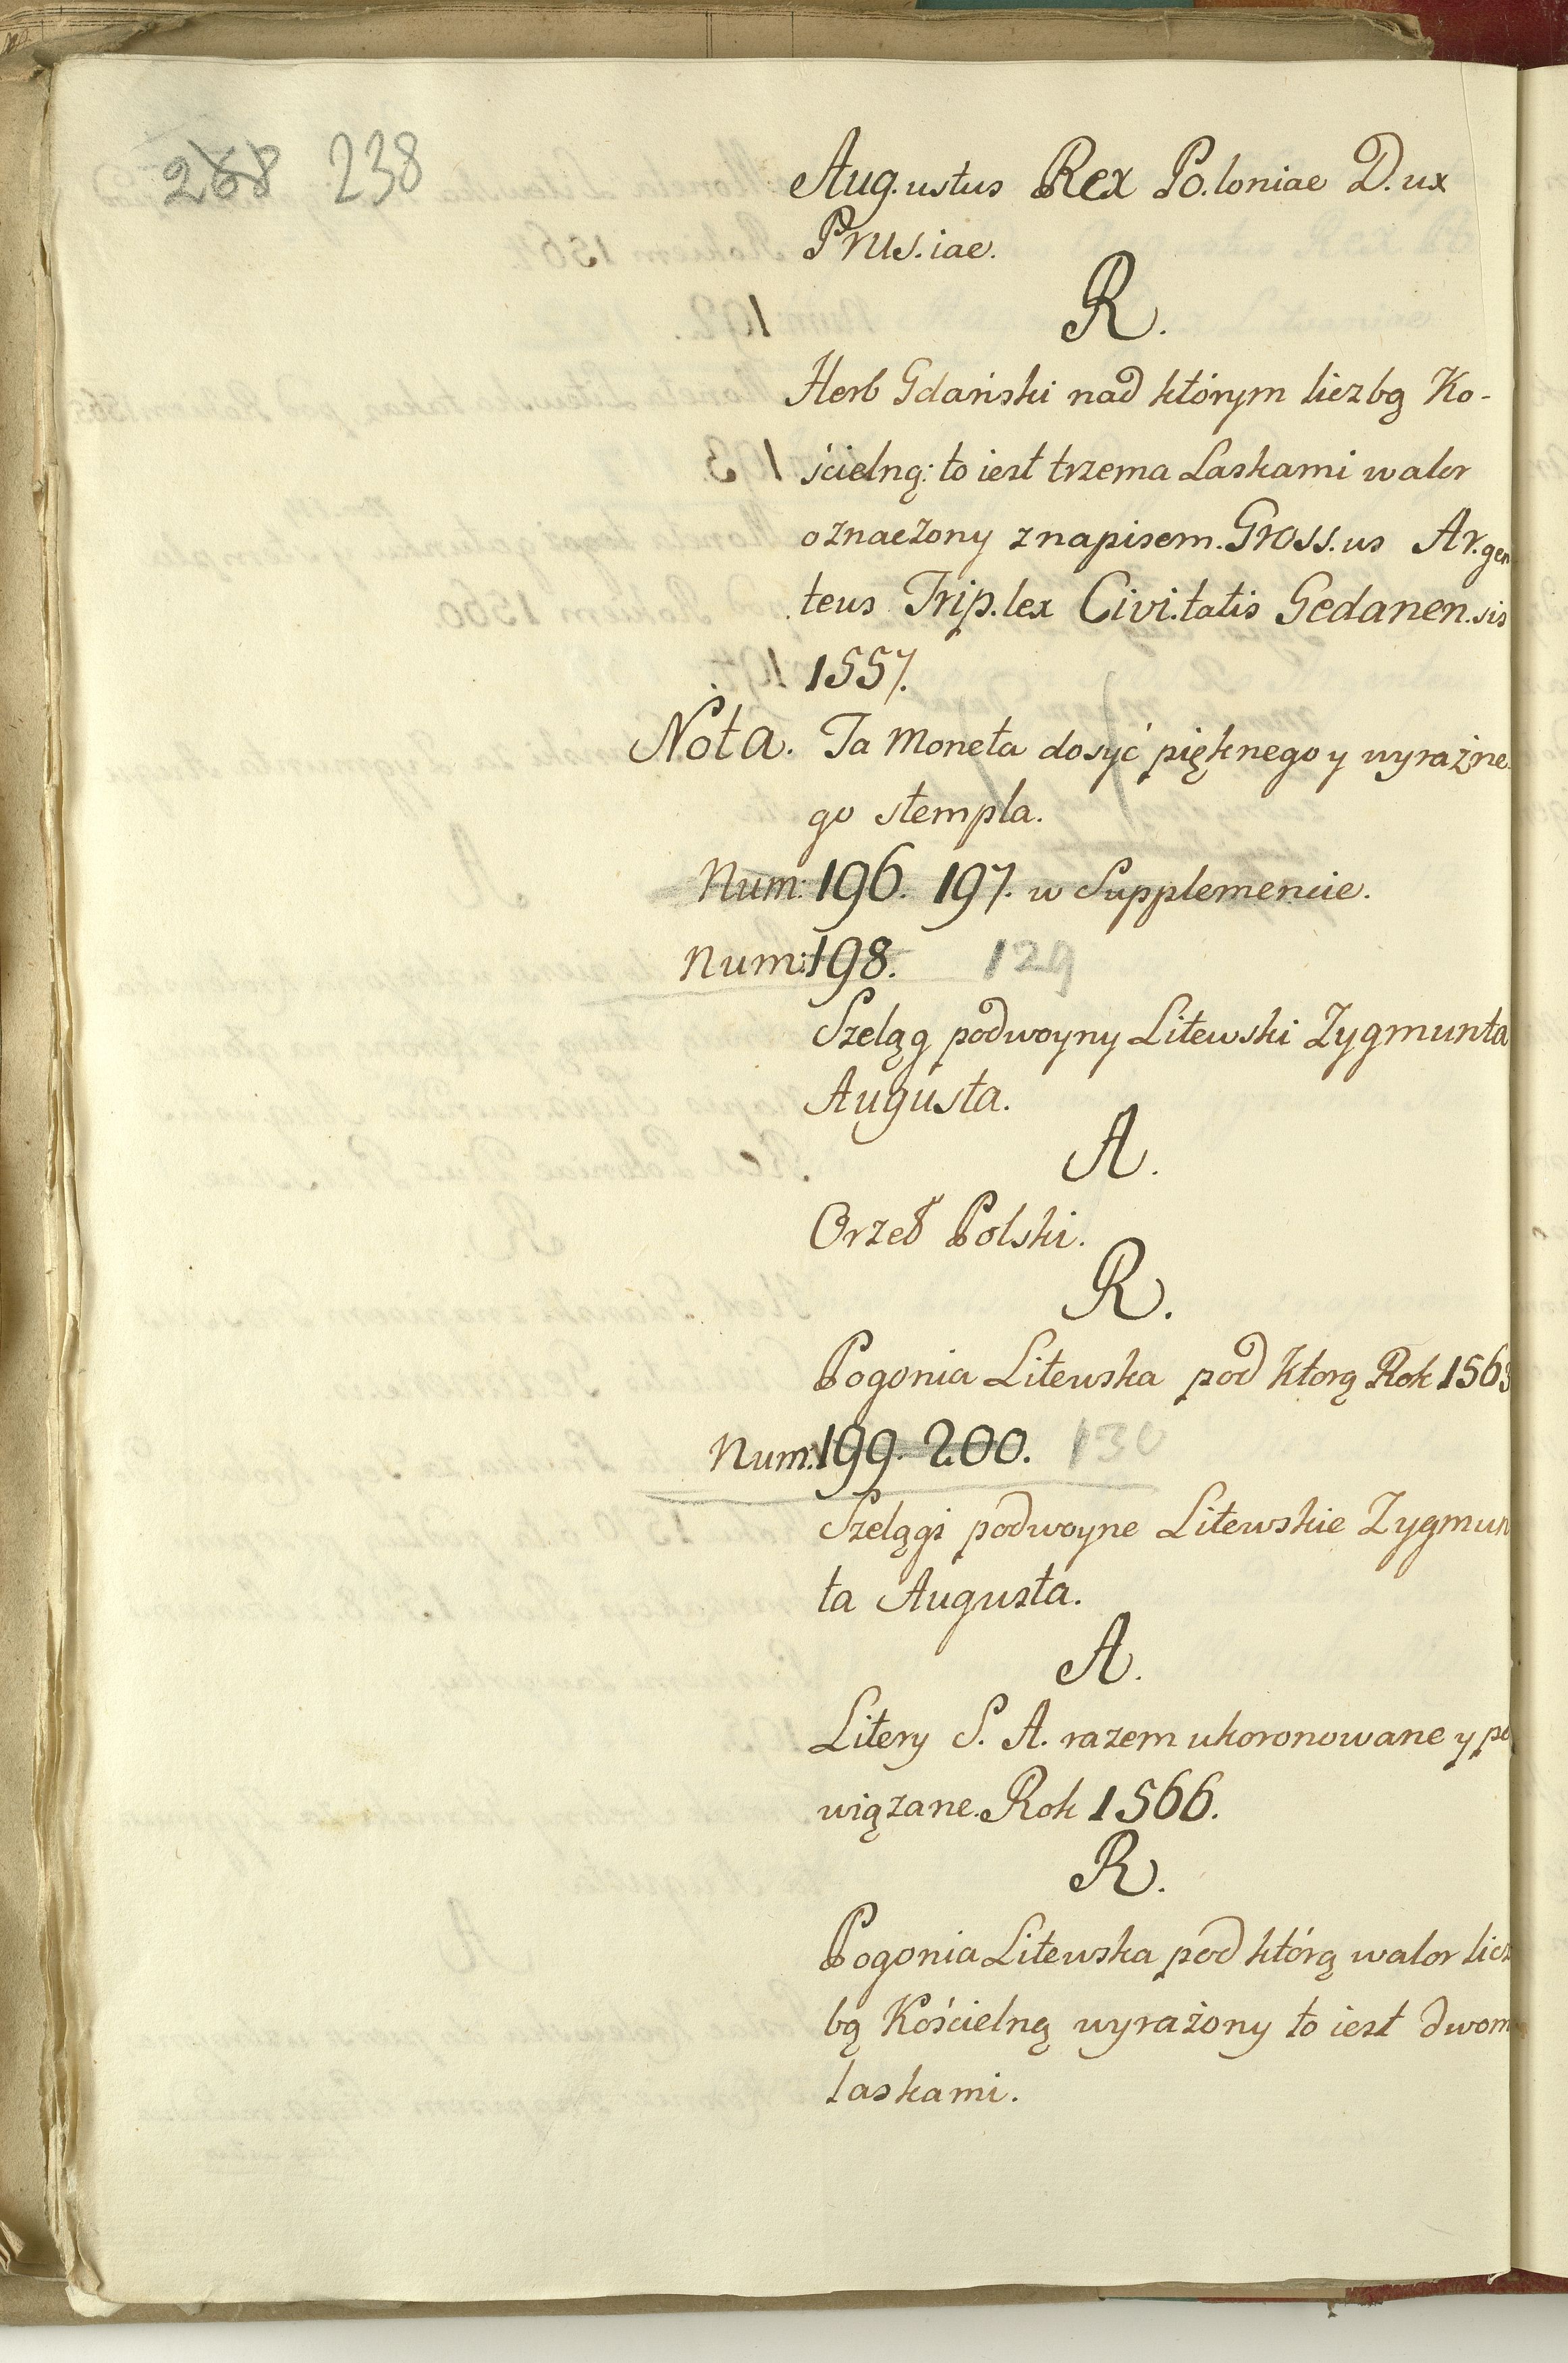 268 238
Aug.ustus Rex Po.loniae D.ux
Prus.iae.
R.
Herb Gdański nad którym liczbą Ko-
ścielną: to iest trzema Laskami walor
oznaczony z napisem. Gross.us Ar.gen
teus Trip.lex Civi.tatis Gedanen.sis
1557.
Nota. Ta Moneta dosyć pięknego y wyraźne
go stempla.
Num: 196. 197. w Supplemencie.
Num: 198. 129
Szeląg podwoyny Litewski Zygmunta
Augusta.
A.
Orzeł Polski.
R.
Pogonia Litewska pod ktorą Rok
Num: 199. 200. 130
Szelągi podwoyne Litewskie Zygmun
ta Augusta.
A.
Litery S. A. razem ukoronowane y po
wiązane. Rok 1566.
R.
Pogonia Litewska pod którą walor licz
bą Kościelną wyrażony to iest dwom
laskami.